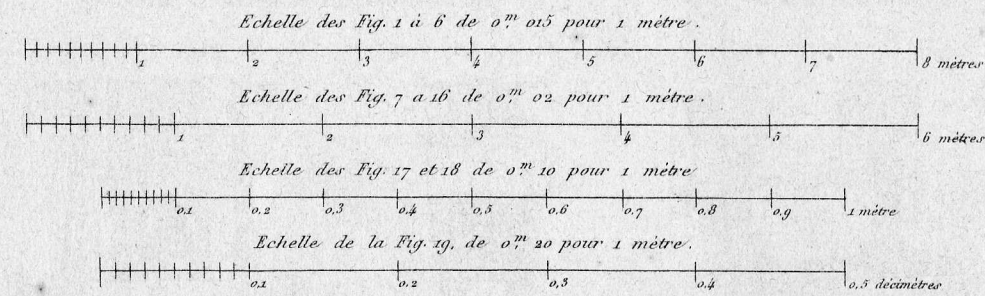 Echelle des Fig. 1 à 6 de 0,m 015 pour 1 mètre.
1 2 3 4 5 6 7 8 mètres
Echelle des Fig. 7 a 16 de 0,m 02 pour 1 mètre.
1 2 3 4 5 6 mètres
Echelle des Fig. 17 et 18 de 0,m 10 pour 1 mètre
0,1 0,2 0,3 0,4 0,5 0,6 0,7 0,8 0,9 1 mètre
Echelle de la Fig. 19, de 0,m 20 pour 1 mètre.
0,1 0,2 0,3 0,4 0,5 décimètres